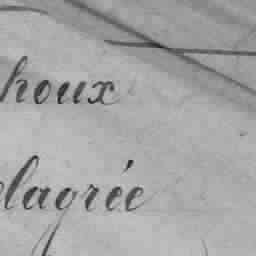 houx
lagrée